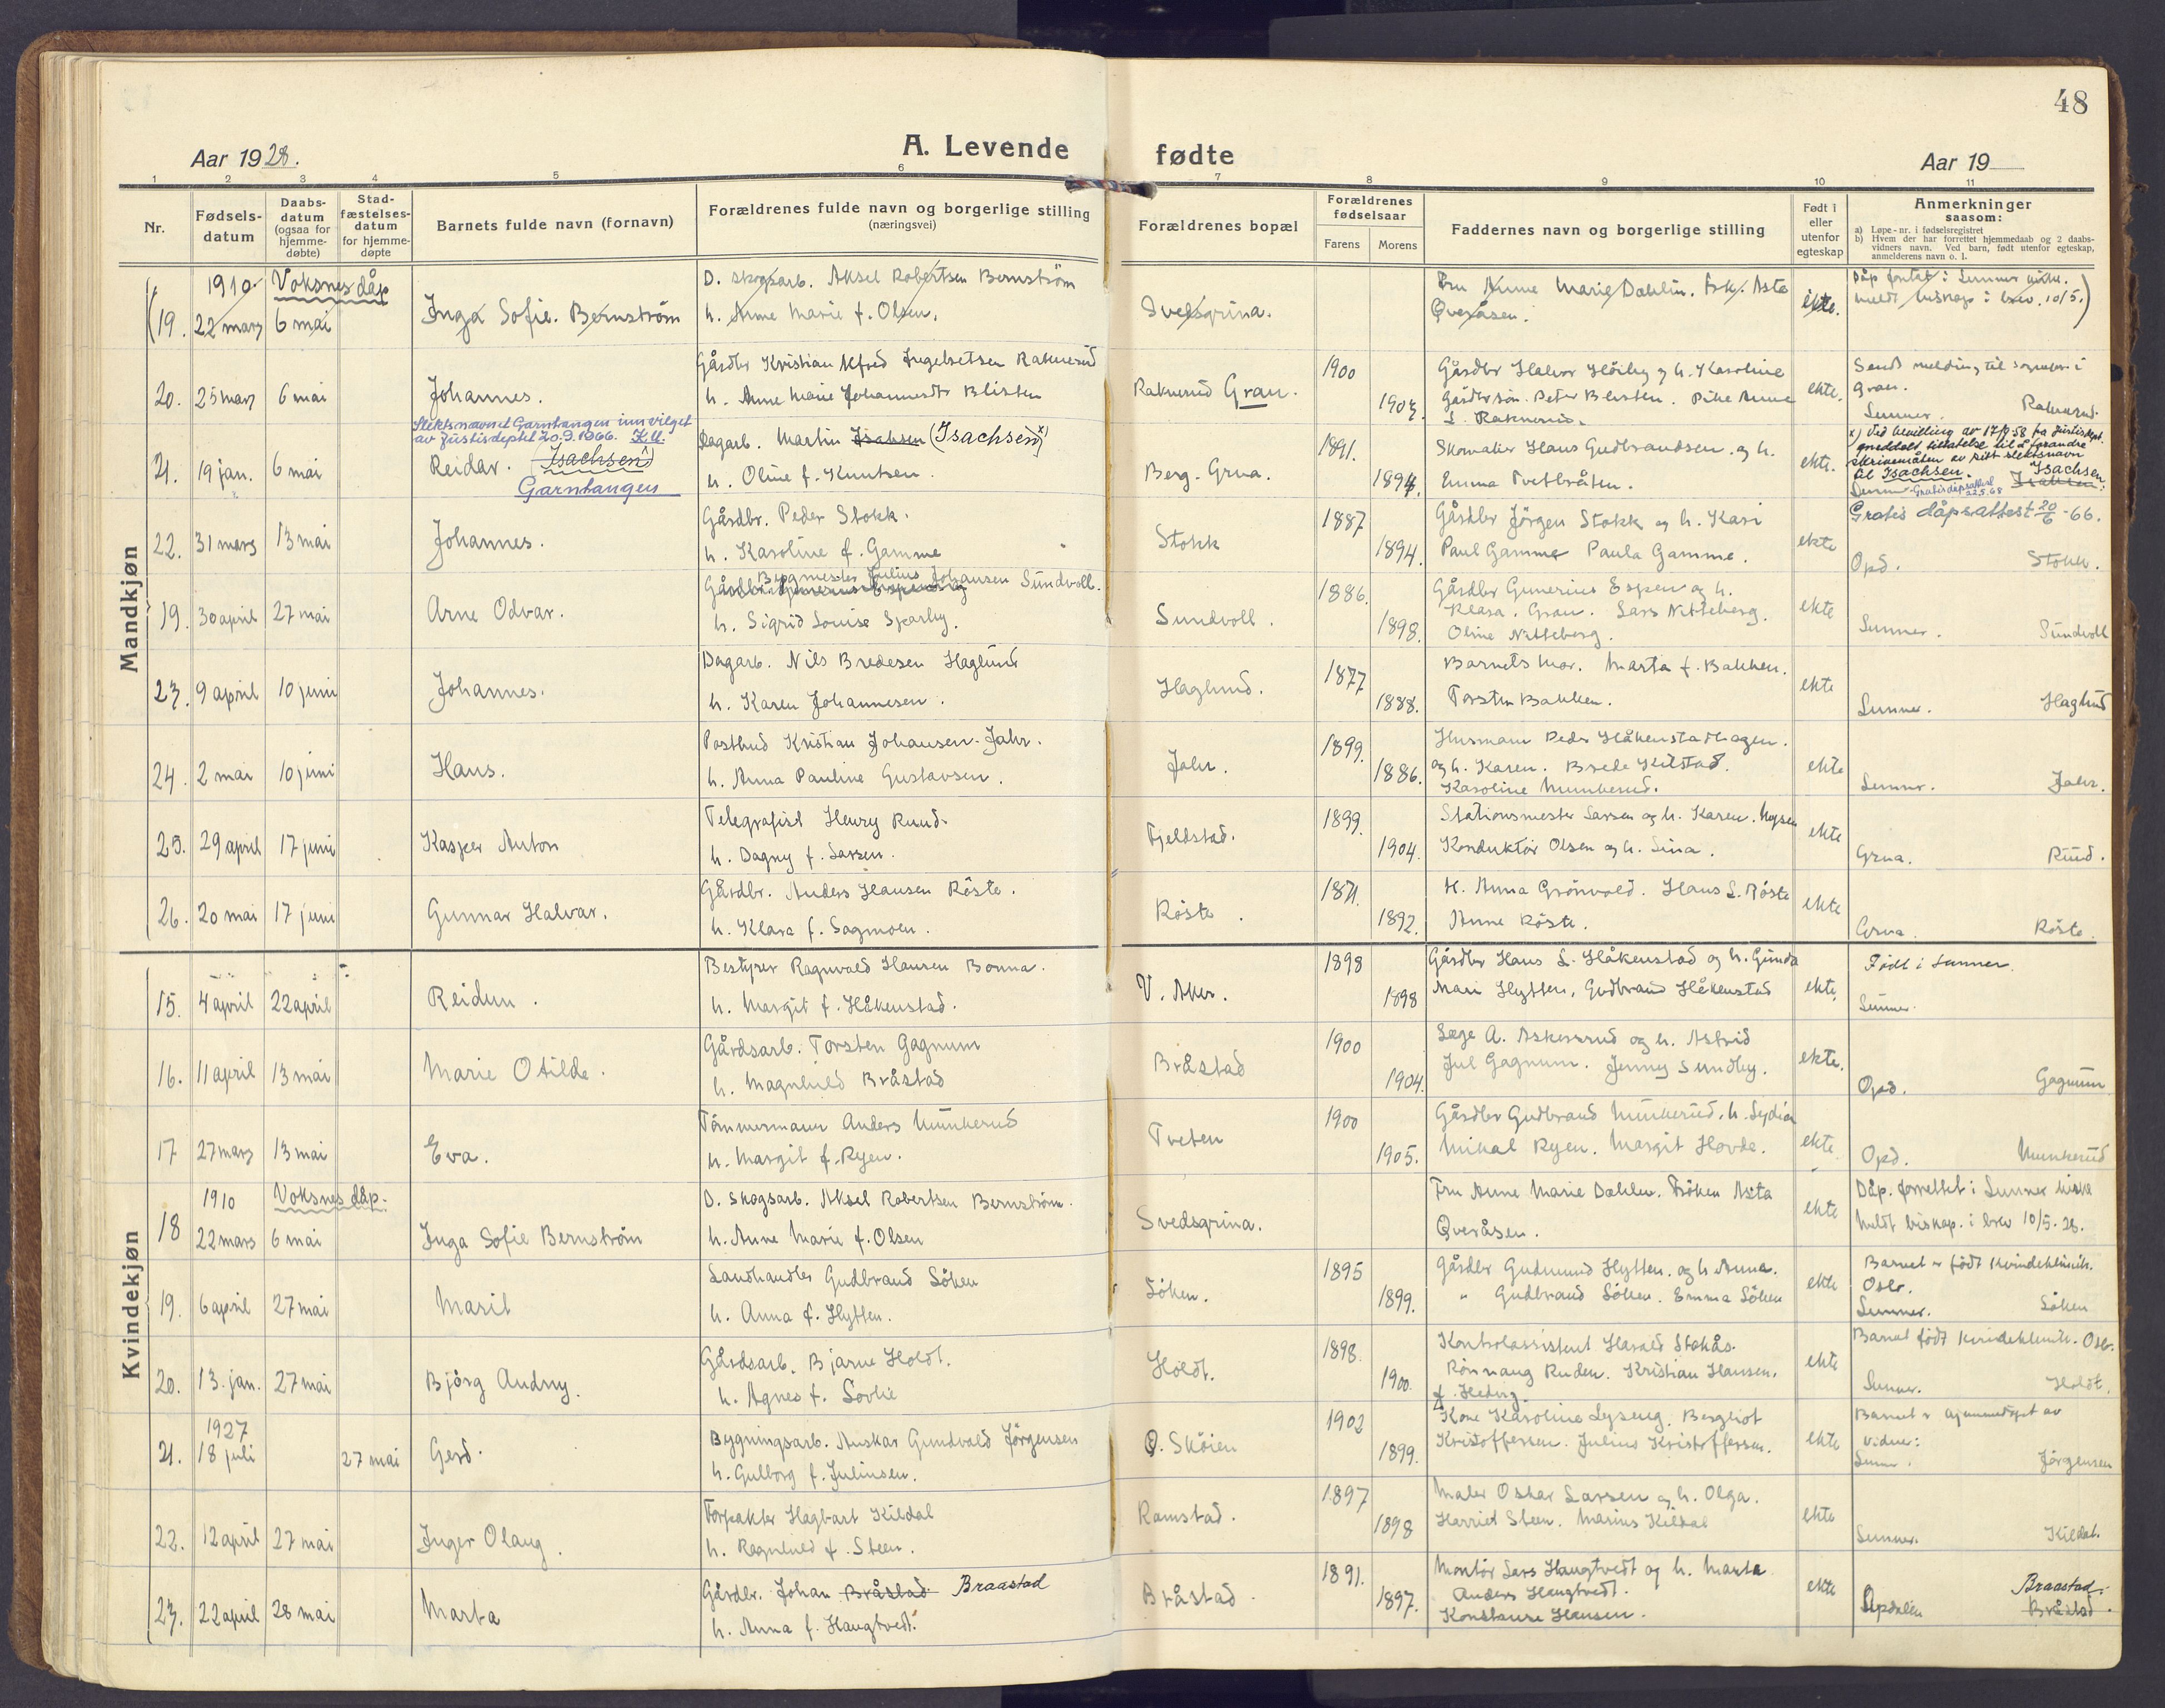 48
Aar 1928.
A. Levende fødte
Aar 19
1 2 3 4 5 6 7 8 9 10 11
Nr.
Fødsels-
datum
Daabs-
datum
(ogsaa for
hjemme-
døbte)
Stad-
fæstelses-
datum
for hjemme-
døpte
Barnets fulde navn (fornavn)
Forældrenes fulde navn og borgerlige stilling
(næringsvei)
Forældrenes bopæl
Forældrenes
fødselsaar
Farens Morens
Faddernes navn og borgerlige stilling
Født i
eller
utenfor
egteskap
Anmerkninger
saasom:
a) Løpe-nr. i fødselsregistret
b) Hvem der har forrettet hjemmedaab og 2 daabs-
vidners navn. Ved barn, født utenfor egteskap,
anmelderens navn o. l.
Mandkjøn
1910 Voksnes dåp
(19. 22 mars 6 mai
Inga Sofie. Bernström
D. skogsarb. Aksel Robertsen Bernström
h. Anne Marie f. Olsen.
Svedsgrina.
Fru Anne Marie Dahlin. Frk. Asta
Qveråsen.
ekte.
meldt biskop i brev. 10/5.)
20. 25 mars 6 mai
Johannes.
Gårdbr Kristian Alfred Ingebretsen Raknerud
h. Anne Marie Johannesdtr Blisten
Raknerud Gran.
1900
1903.
Gårdbr Halvor Höiby og h. Karoline
Gårdbrsön. Peter Blisten. Pike Anne
L. Raknerud.
ekte.
Sendt melding til sognepr. i
Gran.
Lunner. Raknerud.
Slektsnavnet Garntangen innvilget
av Justisdeptet 20.9.1966. K.U.
21. 19 jan. 6 mai
Reidar. (Isachsen x)
Garntangen
Dagarb. Martin Isaksen (Isachsen x)
h. Oline f. Knutsen.
Berg. Grua.
1891.
1894.
Skomaker Hans Gudbrandsen. og h.
Emma Tvetbråten.
ekte.
x) Ved bevilling av 17/9 58 fra Justisdept.
meddelt tillatelse til å forandre
skrivemåten av sitt slektsnavn
til Isachsen. Isachsen
Lunner Gratis dåpsattest 22.5.68 Isaksen.
22. 31 mars 13 mai
Johannes.
Gårdbr. Peder Stokk.
h. Karoline f. Gamme
Stokk
1887
1894.
Gårdbr Jörgen Stokk og h. Kari
Paul Gamme Paula Gamme.
ekte
Gratis dåpsattest 20/6 -66.
Opd. Stokk.
19. 30 april 27 mai
Arne Odvar.
Bygmester Julius Johansen Sundvoll.
Gårdbr. Gunerius Espen og
h. Sigrid Louise Sparby.
Sundvoll.
1886.
1898.
Gårdbr Gunerius Espen og h.
Klara. Gran. Lars Nitteberg.
Oline Nitteberg.
ekte
Lunner. Sundvoll
23. 9 april 10 juni
Johannes.
Dagarb. Nils Bredesen Haglund
h. Karen Johannesen.
Haglund.
1877
1888.
Barnets mor. Marta f. Bakken.
Torsten Bakken.
ekte
Lunner. Haglund
24. 2 mai 10 juni
Hans.
Postbud Kristian Johansen-Jahr.
h. Anna Pauline Gustavsen.
Jahr.
1899.
1886.
Husmann Peder Håkenstadhagen.
og h. Karen. Brede Kilstad.
Karoline Munkerud.
ekte
Lunner. Jahr.
25. 29 april 17 juni
Kasper Anton
Telegrafist Henry Ruud.
h. Dagny f. Larsen.
Fjeldstad.
1899.
1904.
Stationsmester Larsen og h. Karen. Mysen
Konduktör Olsen og h. Lina.
ekte
Grua. Ruud.
26. 20 mai 17 juni
Gunnar Halvar.
Gårdbr. Anders Hansen Röste.
h. Klara f. Sagmoen.
Röste.
1871.
1892.
K. Anna Grönvold. Hans L. Röste
Anne Röste.
ekte
Grua. Röste.
Kvindekjøn
15. 4 april 22 april
Reidun.
Bestyrer Ragnvald Hansen Bonna.
h. Margit f. Håkenstad.
V. Aker.
1898
1898
Gårdbr Hans L. Håkenstad og h. Gunda
Mari Hytten, Gudbrand Håkenstad
ekte.
Födt i Lunner.
Lunner.
16. 11 april 13 mai
Marie Otilde.
Gårdsarb. Torsten Gagnum
h. Magnhild Bråstad
Bråstad
1900
1904.
Læge A. Askevrud og h. Astrid
Jul Gagnum. Jenny Sundby.
ekte.
Opd. Gagnum
17 27 mars 13 mai
Eva.
Tömmermann Anders Munkerud
h. Margit f. Ryen.
Tveten
1900
1905.
Gårdbr Gudbrand Munkerud. h. Lydia
Mikal Ryen. Margit Hovde.
ekte
Opd. Munkerud
1910 Voksnes dåp.
18 22 mars 6 mai
Inga Sofie Bernström
D. skogsarb. Aksel Robertsen Bernström.
h. Anne Marie f. Olsen
Svedsgrina.
Fru Anne Marie Dahlen. Fröken Asta
Qveråsen.
ekte
Dåp. forrettet i Lunner kirke
Meldt biskop. i brev 10/5. 28.
19. 6 april 27 mai
Marit
Landhandler Gudbrand Söhen
h. Anna f. Hytten.
Söhen.
1895
1899.
Gårdbr Gudmund Hytten. og h Anna.
" Gudbrand Söhen. Emma Söhen
ekte
Barnet er födt Kvindeklinik.
Oslo.
Lunner. Söhen
20. 13. jan. 27 mai
Bjørg Audny.
Gårdsarb. Bjarne Holdt.
h. Agnes f. Sovlie
Holdt.
1898.
1900.
Kontrolassistent Harald Stokås.
Rönnaug Ruden. Kristian Hansen.
f. Hedvig
ekte
Barnet födt kvindeklinik. Oslo.
Lunner. Holdt.
1927
21. 18 juli 27 mai
Gerd.
Bygningsarb. Anskar Gundvald Jörgensen
h. Gulborg f. Juliusen.
Ö. Sköien
1902
1899.
Kone Karoline Lyseng. Bergliot
Kristoffersen. Julius Kristoffersen.
ekte
Barnet er hjemmedöpt av
vidner:
Lunner. Jörgensen
22. 12 april 27 mai
Inger Olaug.
Forpakter Hagbart Kildal
h. Ragnhild f. Steen.
Ramstad.
1897
1898
Maler Oskar Larsen og h. Olga.
Harriet Steen. Marius Kildal
ekte
Lunner. Kildal.
23. 22 april 28 mai
Marta
Gårdbr. Johan Bråstad Braastad
h. Anna f. Haugtvedt.
Bråstad
1891.
1897.
Montör Lars Haugtvedt og h. Marta
Anders Haugtvedt.
Konstanse Hansen.
ekte
Braastad.
Opdalen Bråstad.